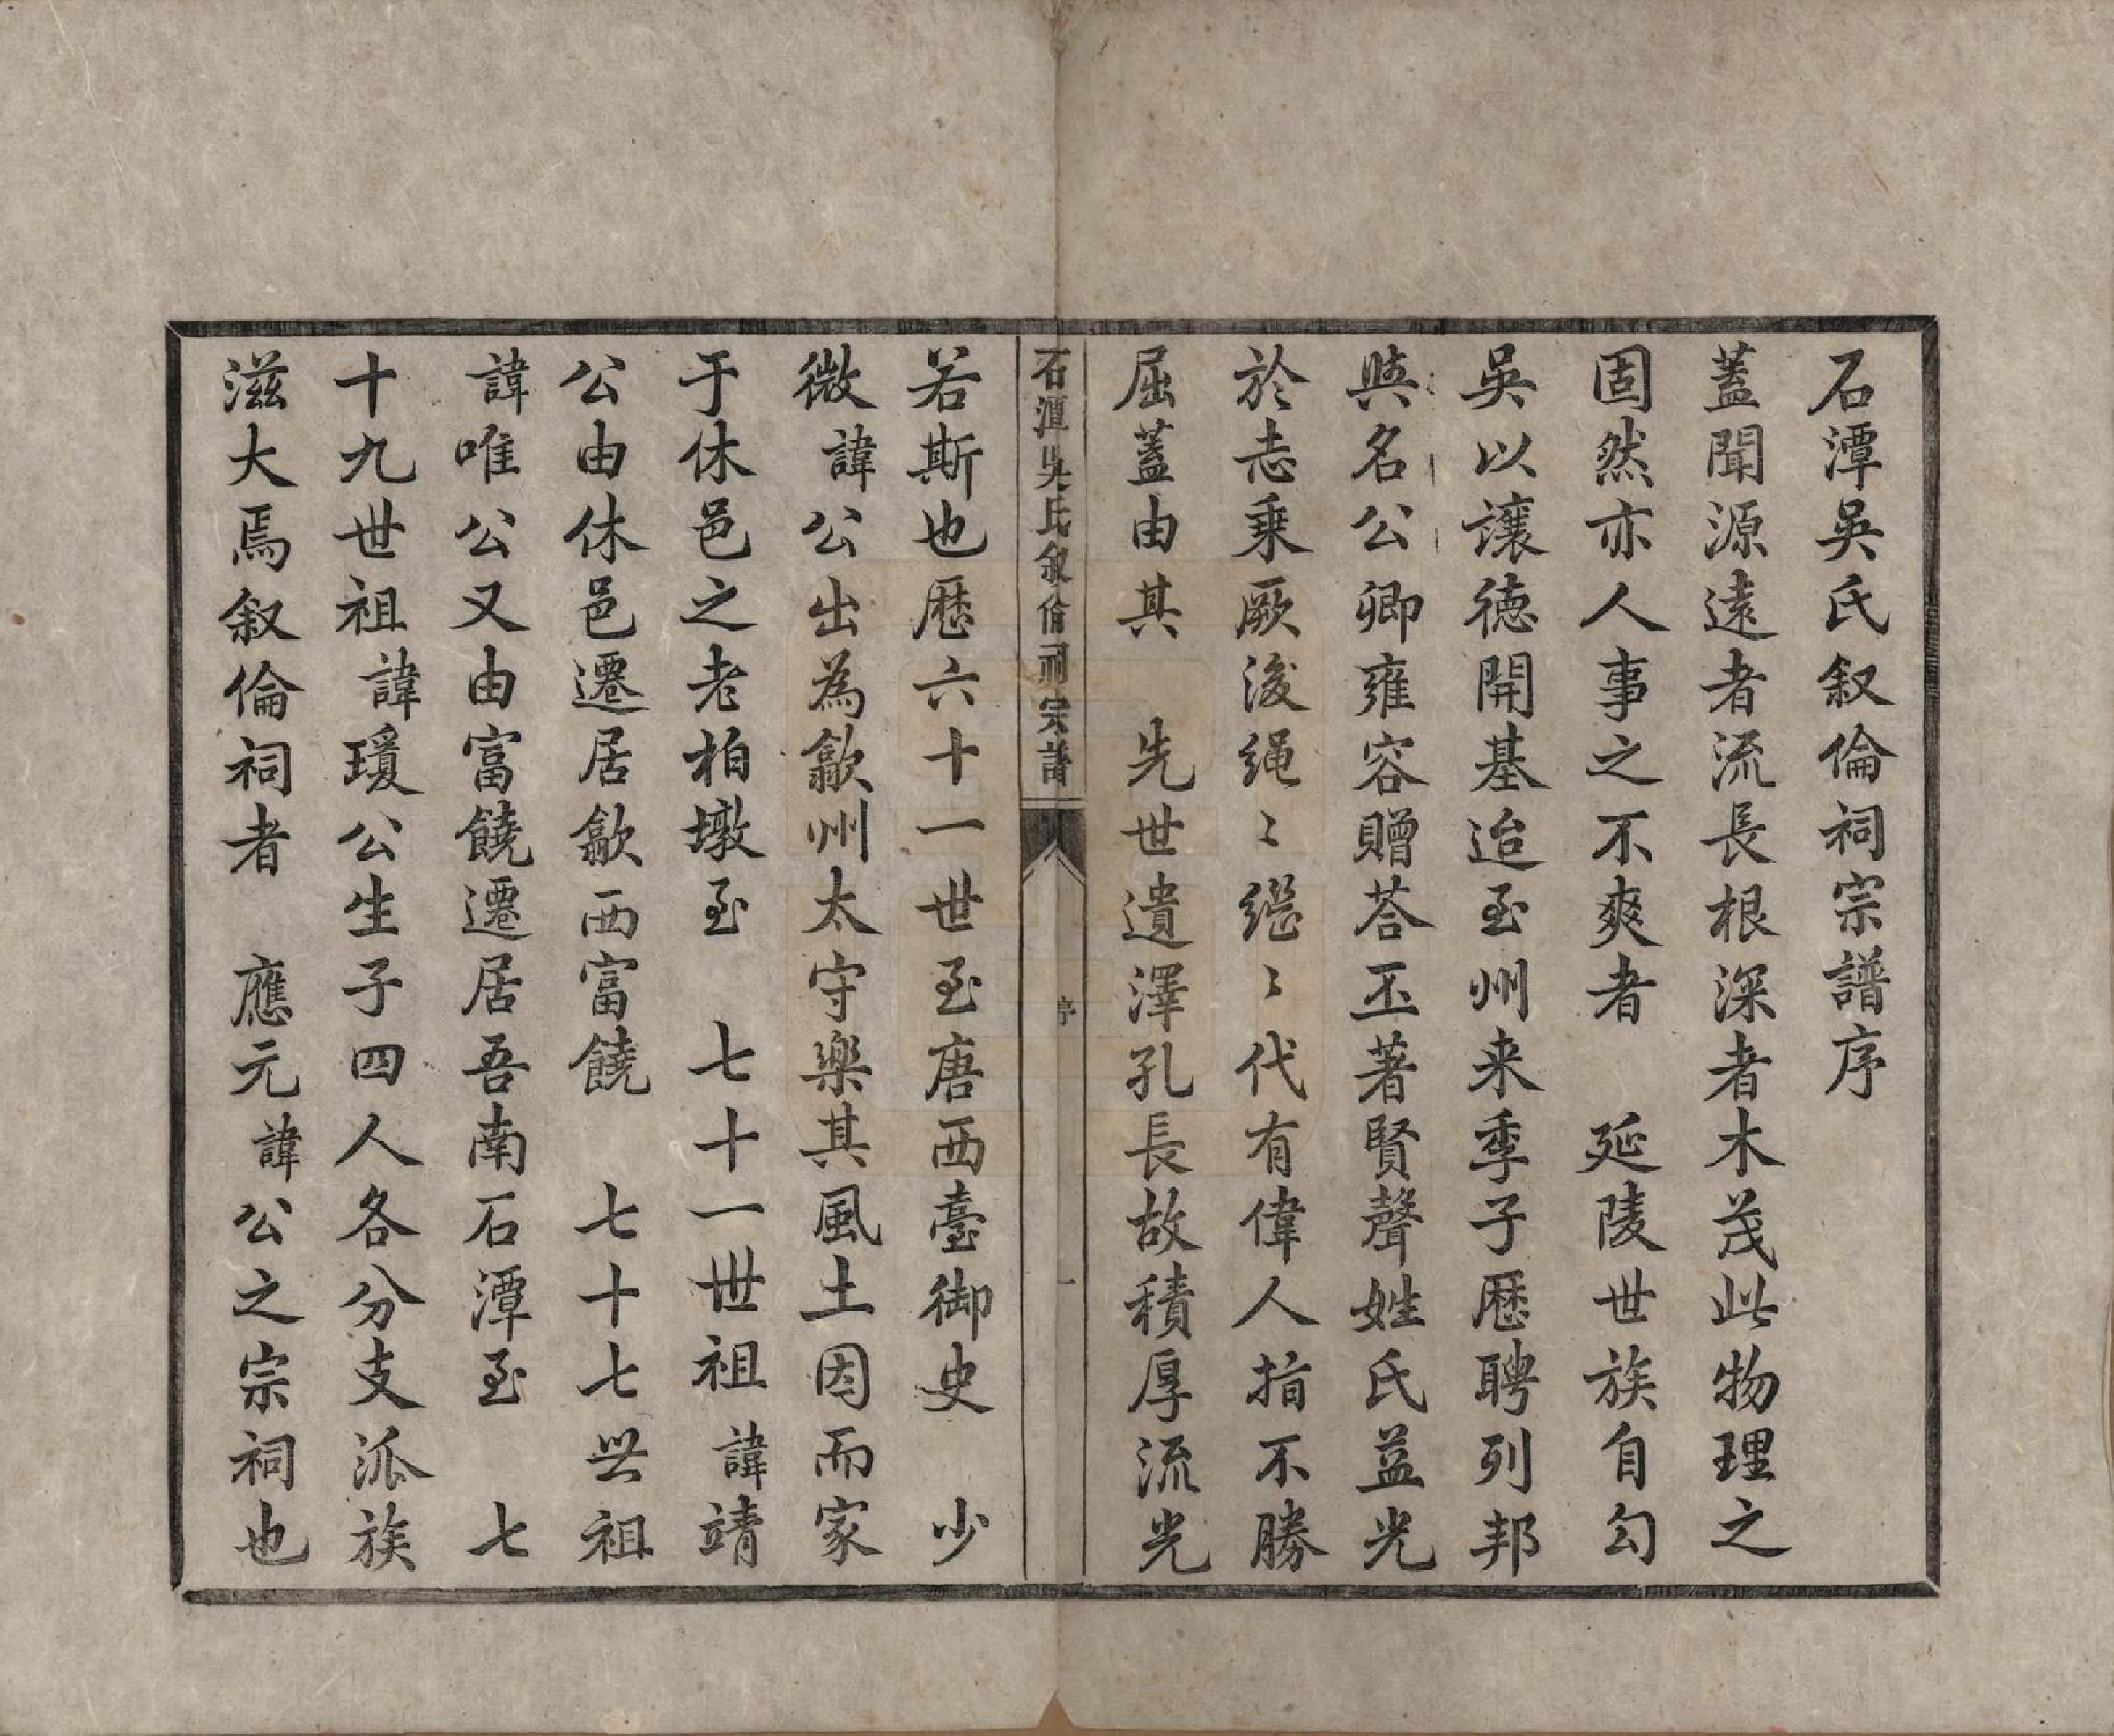 石潭吳氏叙倫祠宗譜序
蓋聞源遠者流長根深者木茂此物理之
固然亦人事之不爽者　延陵世族自勾
吳以讓德開基迨至州来季子歴聘列邦
與名公卿雍容贈荅丕著賢聲姓氏益光
於志乗厥後繩〻繼〻代有偉人指不勝
屈蓋由其　先世遺澤孔長故積厚流光
石潭吳氏叙倫祠宗譜
序
一
若斯也歴六十一世至唐西臺御史　少
微諱公出為歙州太守樂其風土因而家
于休邑之老柏墩至　七十一世祖諱靖
公由休邑遷居歙西富饒　七十七世祖
諱唯公又由富饒遷居吾南石潭至　七
十九世祖諱瓊公生子四人各分支派族
滋大焉叙倫祠者　應元諱公之宗祠也